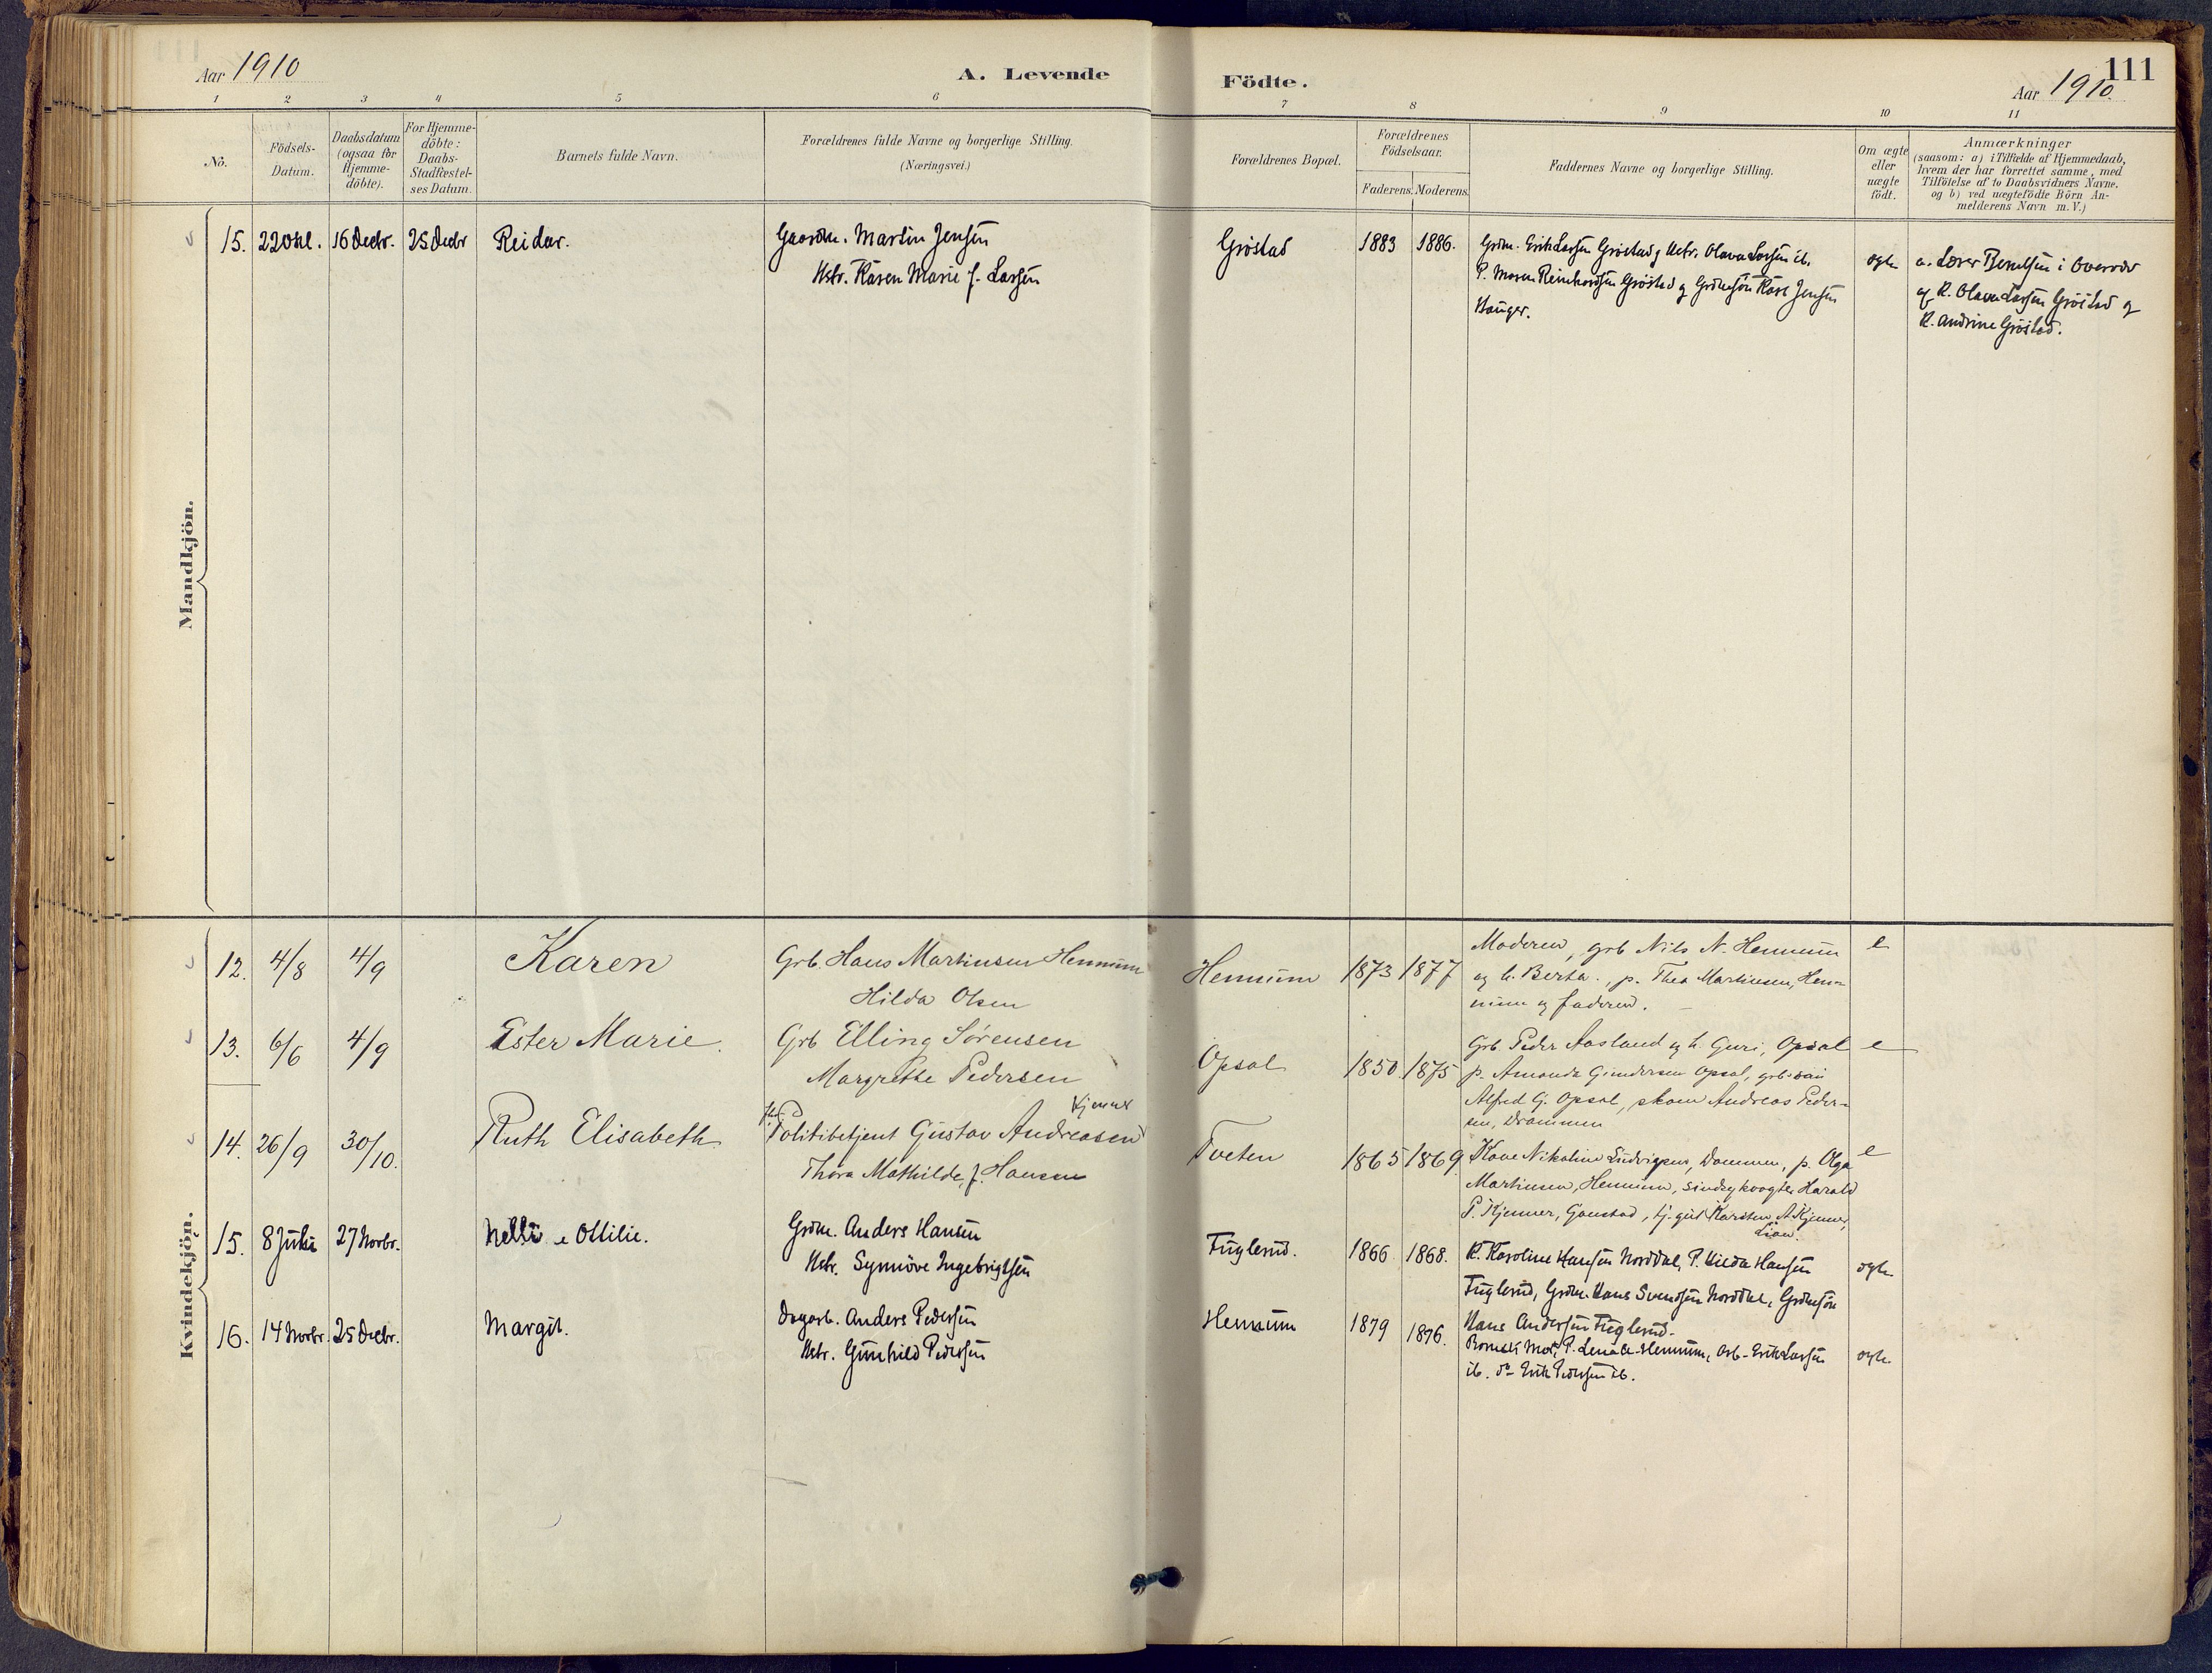 Aar 1910
A. Levende
Födte.
111
Aar 1910.
1 2 3 4 5 6 7 8 9 10 11
No.
Födsels-
Datum.
Daabsdatum
(ogsaa for
Hjemme-
döbte).
For Hjemme-
döbte:
Daabs-
Stadfæstel-
ses Datum.
Barnets fulde Navn.
Forældrenes fulde Navne og borgerlige Stilling.
(Næringsvei.)
Forældrenes Bopæl.
Forældrenes
Födselsaar.
Faderens. Moderens.
Faddernes Navne og borgerlige Stilling.
Om ægte
eller
uægte
födt.
Anmærkninger
(saasom: a) i Tilfælde af Hjemmedaab,
hvem der har forrettet samme, med
Tilföielse af to Daabsvidners Navne.
og b) ved uægtefödte Börn An-
melderens Navn m.V.)
Mandkjön.
15. 22 okt. 16 Decbr. 25 Decbr Reidar.
Gaardm. Martin Jensen
Hstr. Karen Marie f. Larsen
Gröstad
1883 1886.
Grdm. Erik Larsen Gröstad, Hstr. Olava Larsen ib.
P. Maren Reinhardsen Gröstad og Grdmsön Karl Jensen
Hauger.
egte
a. Lærer Berntsen i Overvær
af K. Olava Larsen Gröstad og
K. Andrine Gröstad.
Kvindekjön.
12. 4/8 4/9 Karen
Grb. Hans Martinsen Hennum
Hilda Olsen
Hennum
1873 1877
Moderen, grb Nils N. Hennum
og h. Berta., p. Thea Martinsen, Hen-
num og faderen.
e
13. 6/6 4/9 Ester Marie.
Grb Elling Sörensen
Margrethe Pedersen
Opsal
1850. 1875
Grb. Peder Aasland og h. Guri, Opsal
p. Amanda Gundersen Opsal, grb.
Alfred G. Opsal, Andreas Peder-
sen, Drammen
e
14. 26/9 30/10. Ruth Elisabeth
Kjenner
Politibetjent Gustav Andreasen
Thora Mathilde, f. Hansen
Tveten
1865 1869
Kone Nikoline Ludvigsen, Drammen, p. Olga
Martinsen, Hennum, sindsygevogter Harald
P. Kjenner, Gaustad, tj. gut Karsten A. Kjenner,
Lian.
e
15. 8 Juli 27 Novbr. Nelli Ottilie.
Grdm. Anders Hansen
Hstr. Synnöve Ingebrigtsen
Fuglerud.
1866 1868.
K. Karoline Hansen Norddal, P. Hilda Hansen
Fuglerud, Grdm. Hans Svendsen Norddal, Grdmsön
Hans Andersen Fuglerud.
egte
16. 14 Novbr. 25 Decbr. Margit.
Dagarb. Anders Pedersen
Hstr. Gunhild Pedersen
Hennum
1879 1876.
Barnets Mor, P. Lena Hennum, Arb. Erik Larsen
ib. do Erik Pedersen ib.
egte